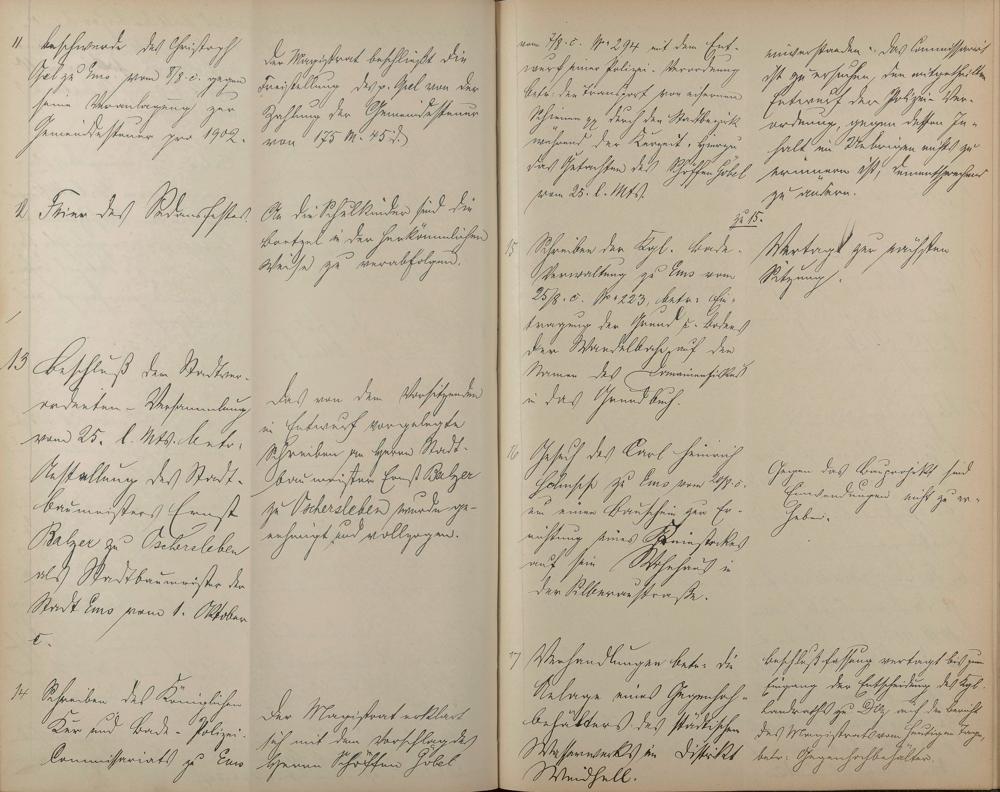 11 Beschwerde des Christoph
zu Ems vom 8/8. c. gegen
seine Veranlagung zur
Gemeindesteuer pro 1902.
Der Magistrat beschließt die
Freistellung des p. von der
Zahlung der Gemeindesteuer
von 175 M. 45 d.
12 Feier des Sedanfestes.
An die Schulkinder sind die
Bretzel in der herkömmlichen
Weise zu verabfolgen.
13 Beschluß der Stadtver-
ordneten-Versammlung
vom 25. l. Mts. betr:
Anstellung des Stadt-
baumeisters Ernst
Balzer zu Oschersleben
als Stadtbaumeister der
Stadt Ems vom 1. Oktober
c.
Das von dem Vorsitzenden
in Entwurf vorgelegte
Schreiben an Herrn Stadt-
baumeister Ernst Balzer
zu Oschersleben wurde ge-
nehmigt und vollzogen.
14 Schreiben des Königlichen
Kur und Bade-Polizei-
Commissariats zu Ems
Der Magistrat erklärt
sich mit dem Vorschlag des
Herrn Schöffen Göbel
vom 7/8. c. No 294 mit dem Ent-
wurf einer Polizei-Verordnung
betr: den Transport von eisernen
Schienen pp durch den Stadtbezirk
während der Kurzeit. Hierzu
das Gutachten des Schöffen Göbel
vom 25. l. Mts.
einverstanden. Das Commissariat
ist zu ersuchen, den mitgetheilten
Entwurf der Polizei-Ver-
ordnung, gegen dessen In-
halt im Uebrigen nichts zu
erinnern ist, dementsprechend
zu ändern.
zu 15.
15 Schreiben der Kgl. Bade-
Verwaltung zu Ems vom
25/8. c. No 223, betr: Ein-
tragung des Grund u. Bodens
der Wandelbahn auf den
Namen des Domainenfiskus
in das Grundbuch.
Vertagt zur nächsten
Sitzung.
16 Gesuch des Carl Heinrich
zu Ems vom 20/8. c.
um einen Bauschein zur Er-
richtung eines Kniestockes
auf sein Wohnhaus in
der Silberaustraße.
Gegen das Bauprojekt sind
Einwendungen nicht zu er-
heben.
17 Verhandlungen betr: die
Anlage eines Gegenhoch-
behälters des städtischen
Wasserwerks im Distrikt
Weidhell.
Beschlußfassung vertagt bis zum
Eingang der Entscheidung des Kgl.
Landraths zu Diez auf den Bericht
des Magistrats vom heutigen Tage,
betr: Gegenhochbehälter.